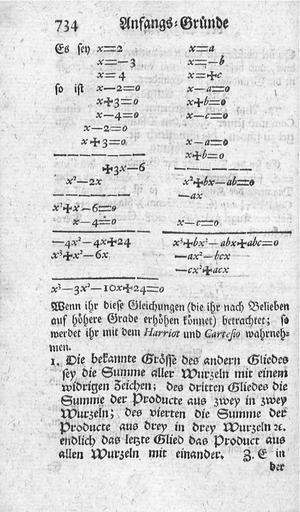 734 Anfangs-Gründe
Es sey x=2 x=a
x=−3 x=−b
x=4 x=+c
so ist x−2=0 x−a=0
x+3=0 x+b=0
x−4=0 x−c=0
x−2=0
x+3=0 x−a=0
x+b=0
+3x−6
x²−2x x²+bx−ab=0
−ax
x²+x−6=0
x−4=0 x−c=0
−4x²−4x+24 x³+bx²−abx+abc=0
x³+x²−6x −ax²−bcx
−cx²+acx
x³−3x²−10x+24=0
Wenn ihr diese Gleichungen (die ihr nach Belieben
auf höhere Grade erhöhen könnet) betrachtet; so
werdet ihr mit dem Harriot und Cartesio wahrneh-
men.
1. Die bekannte Grösse des andern Gliedes
sey die Summe aller Wurzeln mit einem
widrigen Zeichen; des dritten Gliedes die
Summe der Producte aus zwey in zwey
Wurzeln; des vierten die Summe der
Producte aus drey in drey Wurzeln ꝛc.
endlich das letzte Glied das Product aus
allen Wurzeln mit einander. Z. E in
der